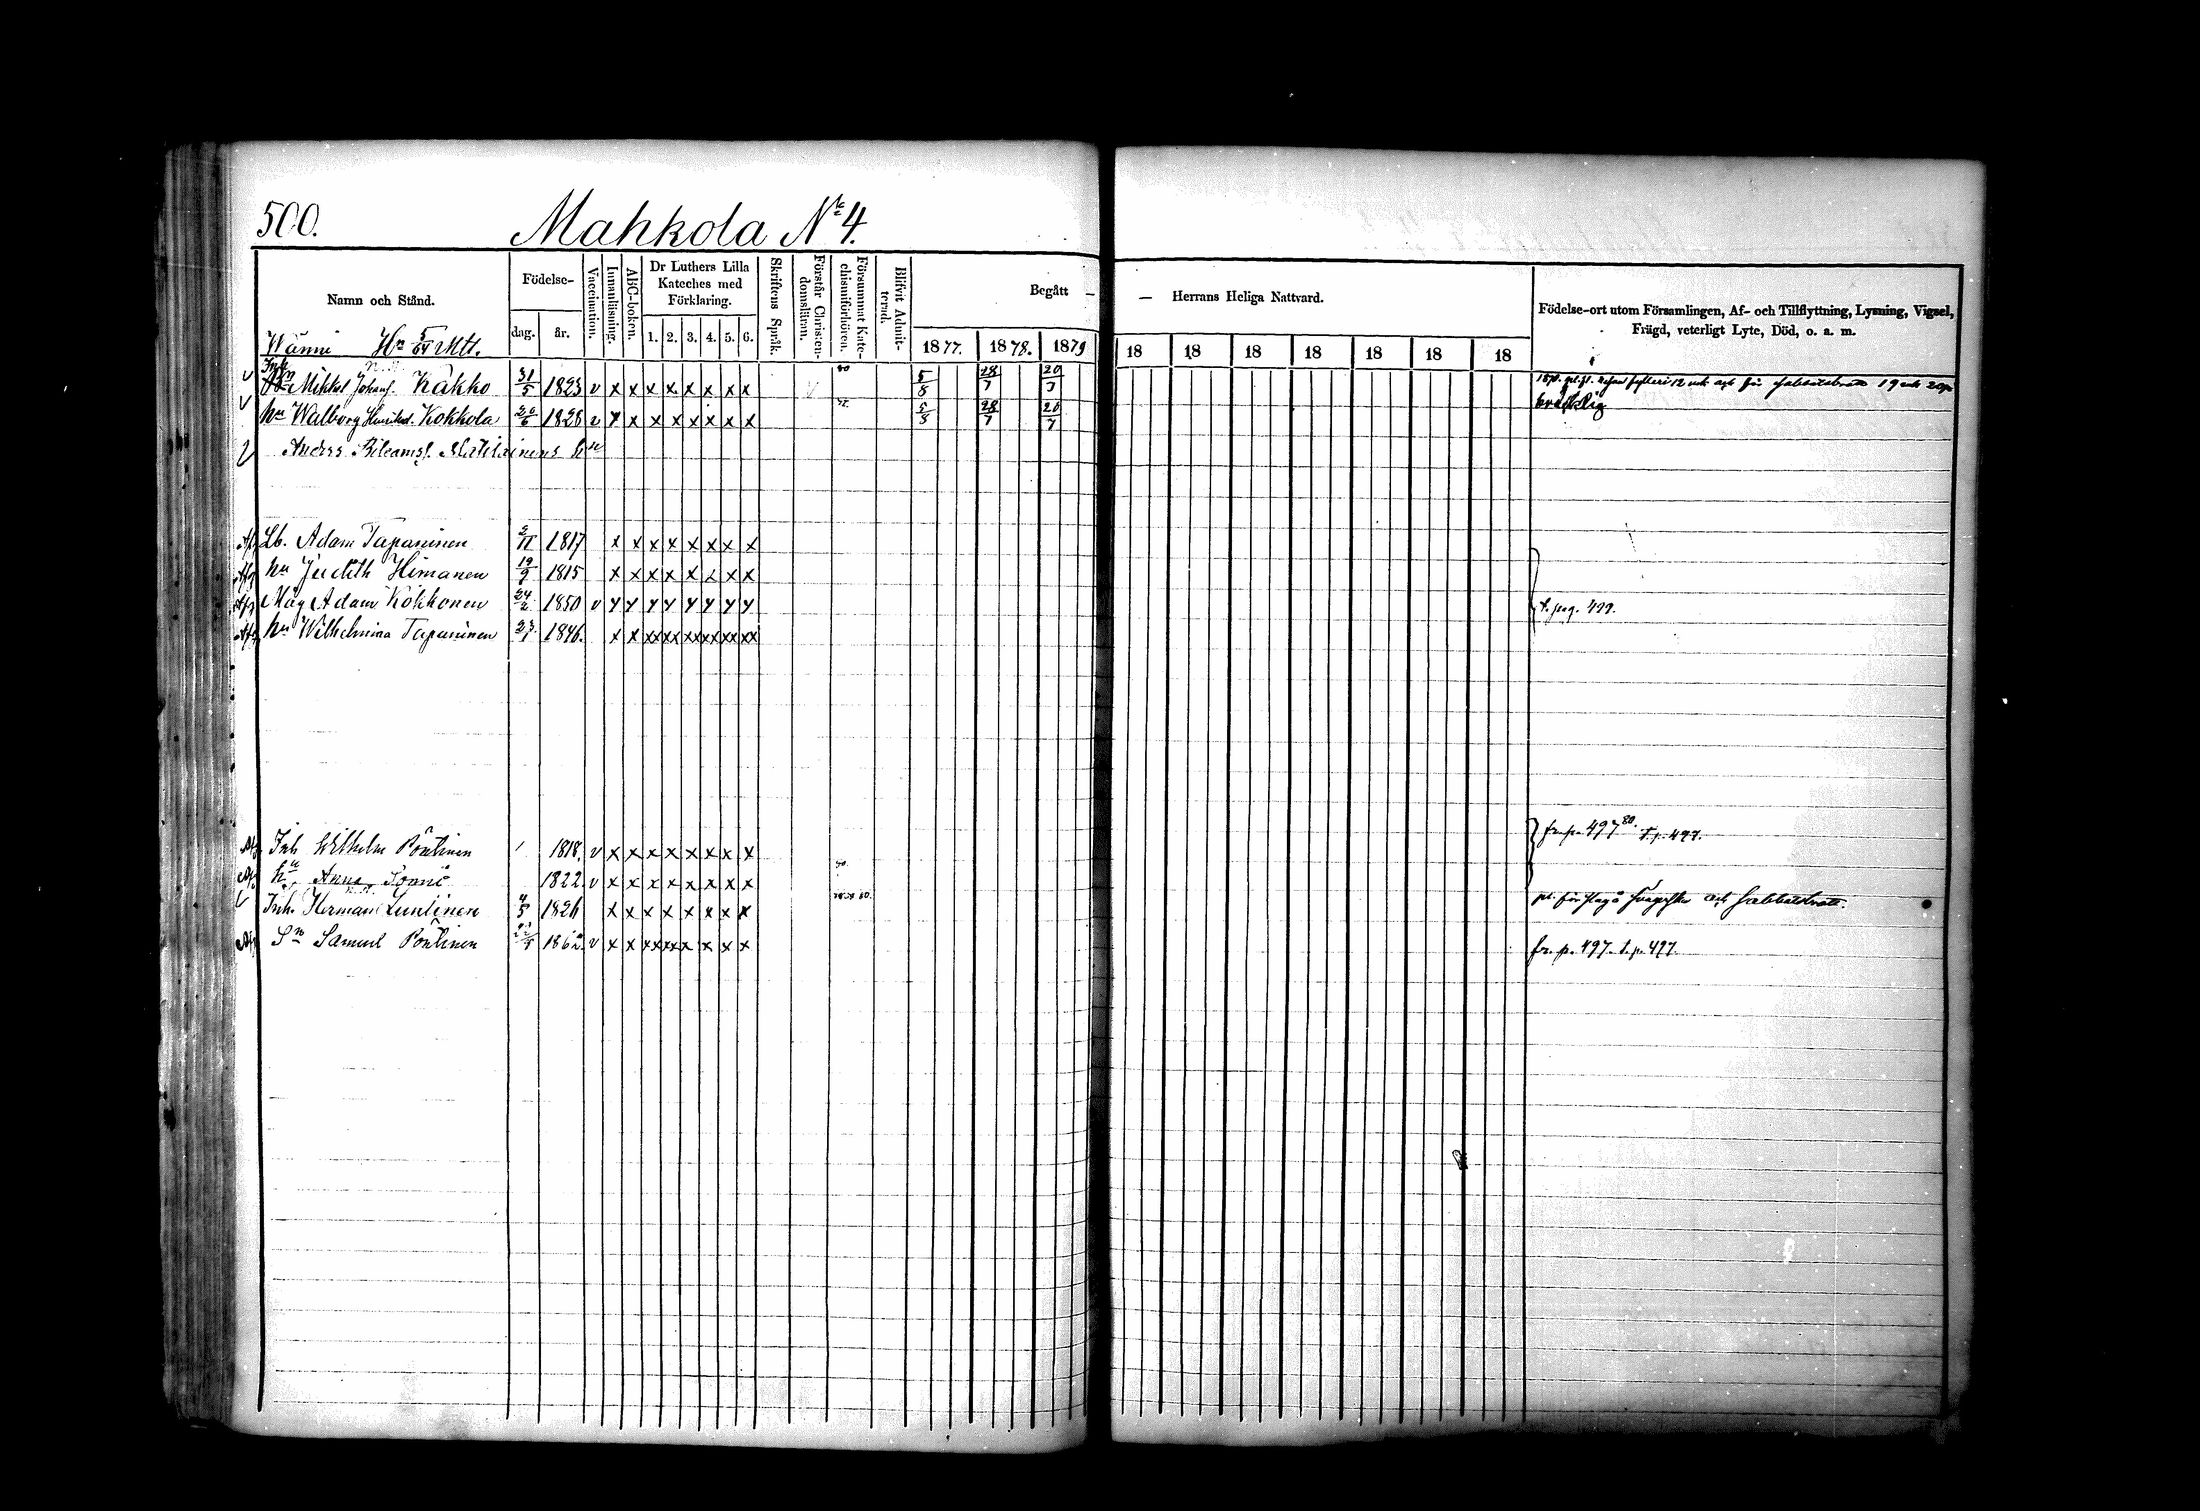 500. Mahkola № 4.
Namn och Stånd.
Födelse-
dag. år.
Vaccination.
Innanläsning.
ABC-boken.
Dr Luthers Lilla Kateches med Förklaring.
1. 2. 3. 4. 5. 6.
Skriftens Språk.
Förstår Christendomsläran.
Försummat Katechismiförhören.
Blifvit Admitterad.
Begått — — Herrans Heliga Nattvard.
1877. 1878. 1879 18 18 18 18 18 18 18
Födelse-ort utom Församlingen, Af- och Tillflyttning, Lysning, Vigsel, Frägd, veterligt Lyte, Död, o. a. m.
Wänni Hn Mtt.
Mikkel Johans. Käkko 31/5 1823 v x x x x x x x x 80 5/8 28/7 20/7
hu Walborg Henriksd. Kokkola 20/6 1828 v x x x x x x x x 5/8 28/7 20/7 bräcklig
Anders Bileamss. Matilainens hu
Afg Lb. Adam Tapaninen 2/11 1817 x x x x x x x x
Afg hu Judith Himanen 19/9 1815 x x x x x x x x
Afg Måg Adam Kokkonen 24/2 1850 v y y y y y y y y t. pag. 499.
Afg hu Wilhelmina Tapaninen 23/1 1846. x x xx xx xx xx xx xx
Afg Inh Wilhelm Pöntinen 1818. v x x x x x x x x fr. p. 497 80. t. p. 497.
Afg hu Anna Sonni 1822 v x x x x x x x x 80.
v Inh. Herman Luntinen 4/5 1826 x x x x x x x x och sabbatsbrott.
Afg Sn Samuel Pöntinen 1862. v x x xx xx x x x x fr. p. 497. t. p. 497.